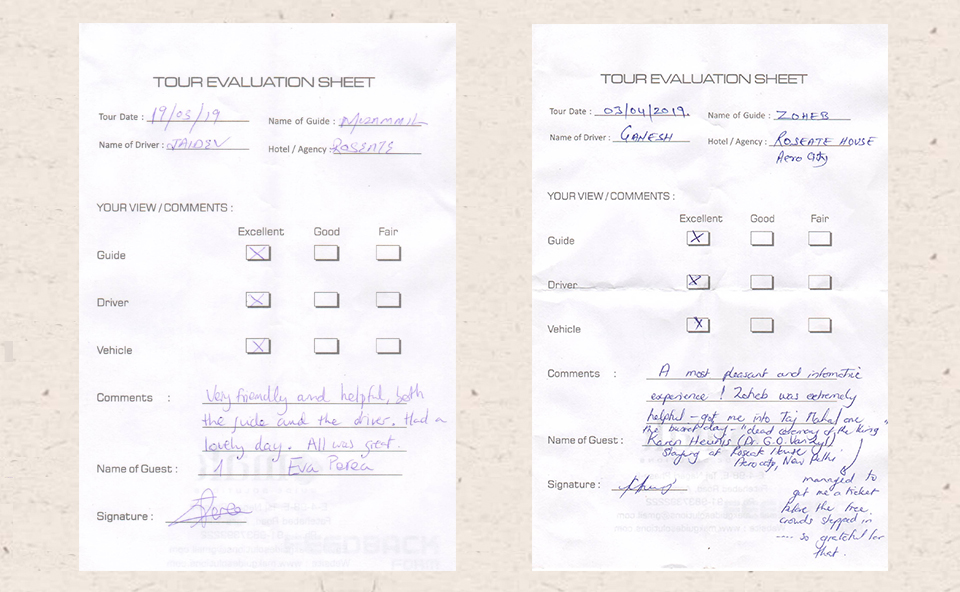 TOUR EVALUATION SHEET
Tour Date : 19/03/19 Name of Guide : Mozammil
Name of Driver : JAIDEV Hotel / Agency ROSEATE
YOUR VIEW / COMMENTS :
Excellent Good Fair
Guide X
Driver X
Vehicle X
Comments : Very friendly and helpful, both
the guide and the driver. Had a
lovely day. All was great.
Name of Guest : Eva Perea
Signature :
TOUR EVALUATION SHEET
Tour Date : 03/04/2019. Name of Guide : ZOHEB
Name of Driver : GANESH Hotel / Agency : ROSEATE HOUSE
Aero City
YOUR VIEW / COMMENTS :
Excellent Good Fair
Guide X
Driver X
Vehicle X
Comments : A most pleasant and informative
experience ! Zoheb was extremely
helpful - got me into Taj Mahal on
the day - "dead ceremony of the King"
Name of Guest : Karen (Dr. G.O. )
Staying at Roseate House
Aerocity, New Delhi
Signature :
managed to
get me a ticket
before the free
crowds stepped in
---- so grateful for
that.